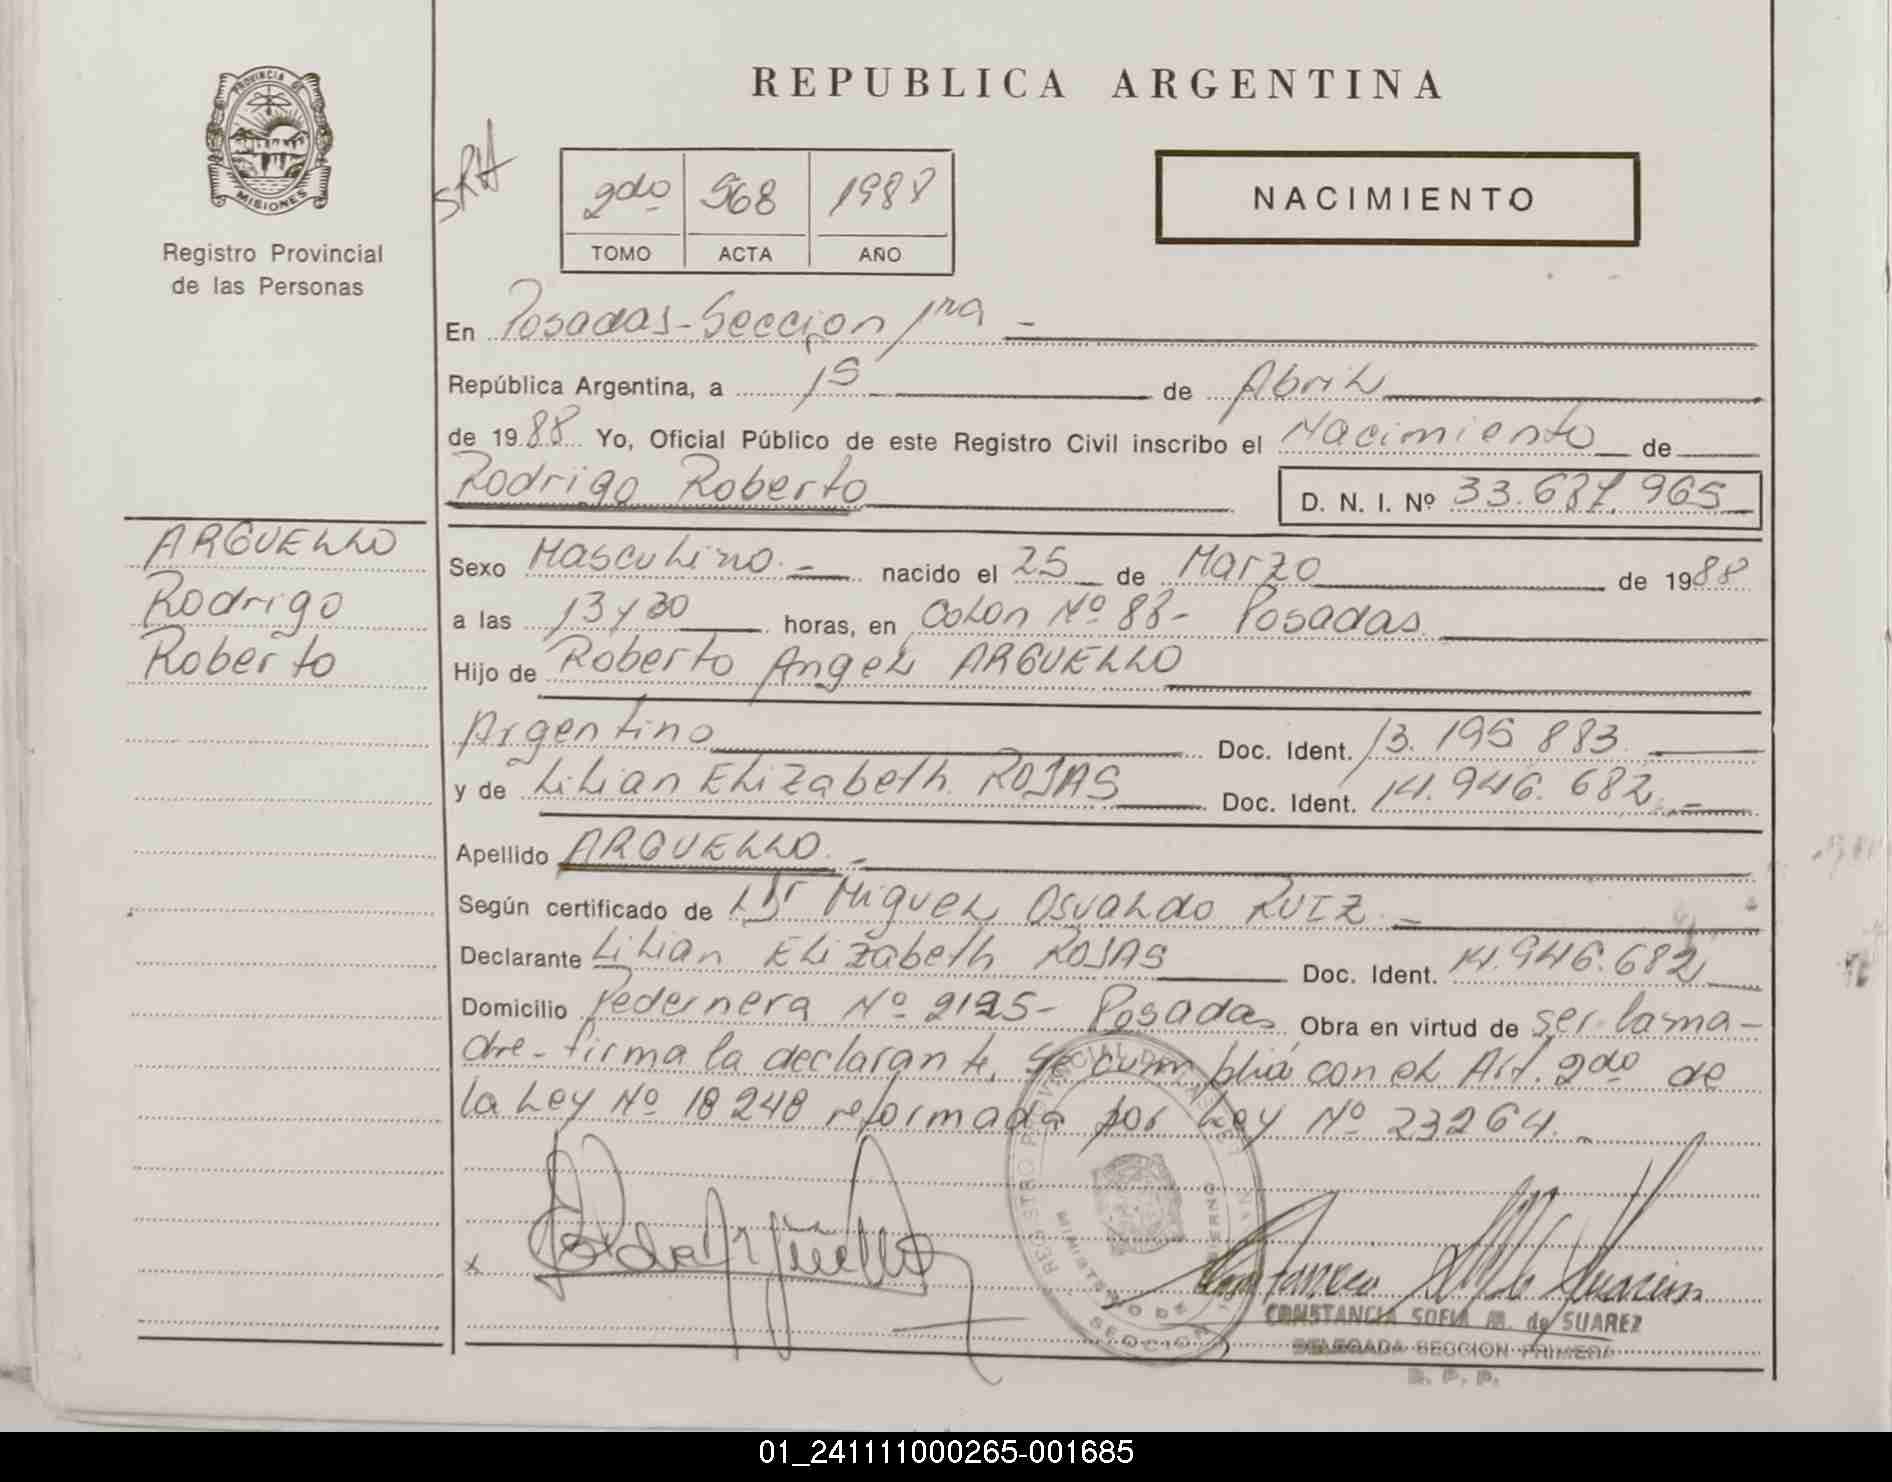 PROVINCIA DE
MISIONES
Registro Provincial
de las Personas
REPUBLICA ARGENTINA
SRH
2do 568 1988
TOMO ACTA AÑO
NACIMIENTO
En Posadas-Sección 1ra -
República Argentina, a 15 de Abril
de 1988 Yo, Oficial Público de este Registro Civil inscribo el Nacimiento de
Rodrigo Roberto D. N. I. Nº 33.687.965
ARGUELLO
Rodrigo
Roberto
Sexo Masculino.- nacido el 25 de Marzo de 1988
a las 13 y 30 horas, en Colon Nº 88- Posadas
Hijo de Roberto Angel ARGUELLO
Argentino Doc. Ident. 13.195.883.
y de Lilian Elizabeth ROJAS Doc. Ident. 14.946.682.-
Apellido ARGUELLO.-
Según certificado de Dr Miguel Osvaldo RUIZ.-
Declarante Lilian Elizabeth ROJAS Doc. Ident. 14.946.682
Domicilio Pedernera Nº 2195- Posadas Obra en virtud de ser la ma-
dre-firma la declarante, se cumplió con el Art. 2do de
la Ley Nº 18248 reformada por Ley Nº 23264.-
x
REGISTRO PROVINCIAL DE LAS
MINISTERIO DE GOBIERNO
SECCION
CONSTANCIA SOFIA M. de SUAREZ
DELEGADA SECCION PRIMERA
R. P. P.
01_241111000265-001685